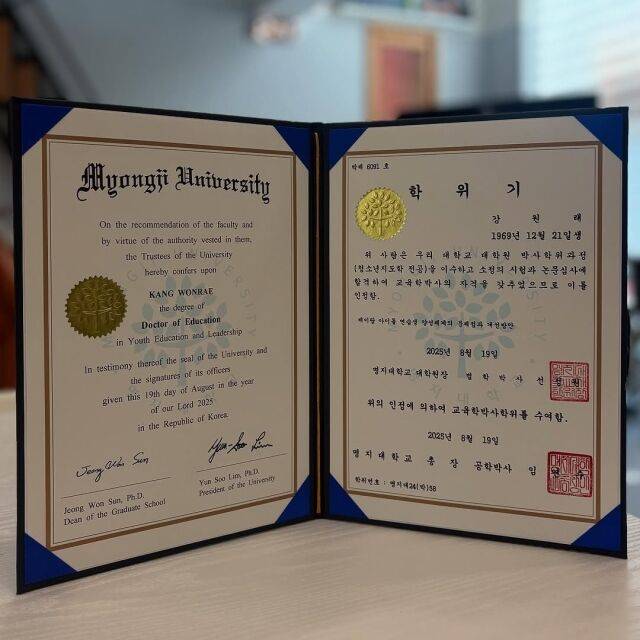 Myongji University
On the recommendation of the faculty and
by virtue of the authority vested in them,
the Trustees of the University
hereby confers upon
KANG WONRAE
the degree of
Doctor of Education
in Youth Education and Leadership
In testimony thereof the seal of the University and
the signatures of its officers
given this 19th day of August in the year
of our Lord 2025
in the Republic of Korea.
Jeong Won Sun
Yun-Soo Lim
Jeong Won Sun, Ph.D.
Dean of the Graduate School
Yun Soo Lim, Ph.D.
President of the University
박제 6091 호
학 위 기
강 원 래
1969년 12월 21일생
위 사람은 우리 대학교 대학원 박사학위과정
(청소년지도학 전공)을 이수하고 소정의 시험과 논문심사에
합격하여 교육학박사의 자격을 갖추었으므로 이를
인정함.
케이팝 아이돌 연습생 양성체제의 문제점과 개선방안
2025년 8월 19일
명지대학교 대학원장 법학박사 선 정 원
위의 인정에 의하여 교육학박사학위를 수여함.
2025년 8월 19일
명 지 대 학 교 총 장 공학박사 임 연 수
학위번호 : 명지대24(박)58